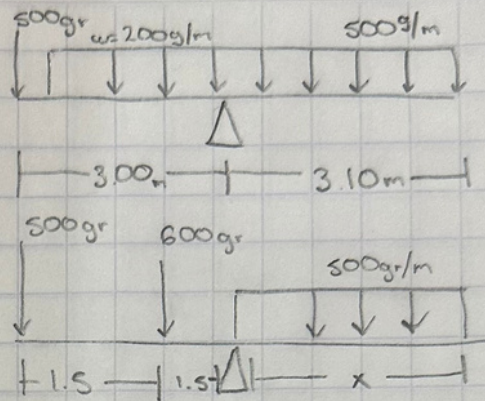 500gr w=200g/m 500g/m
3.00m 3.10m
500gr 600gr
500gr/m
1.5 1.5 x